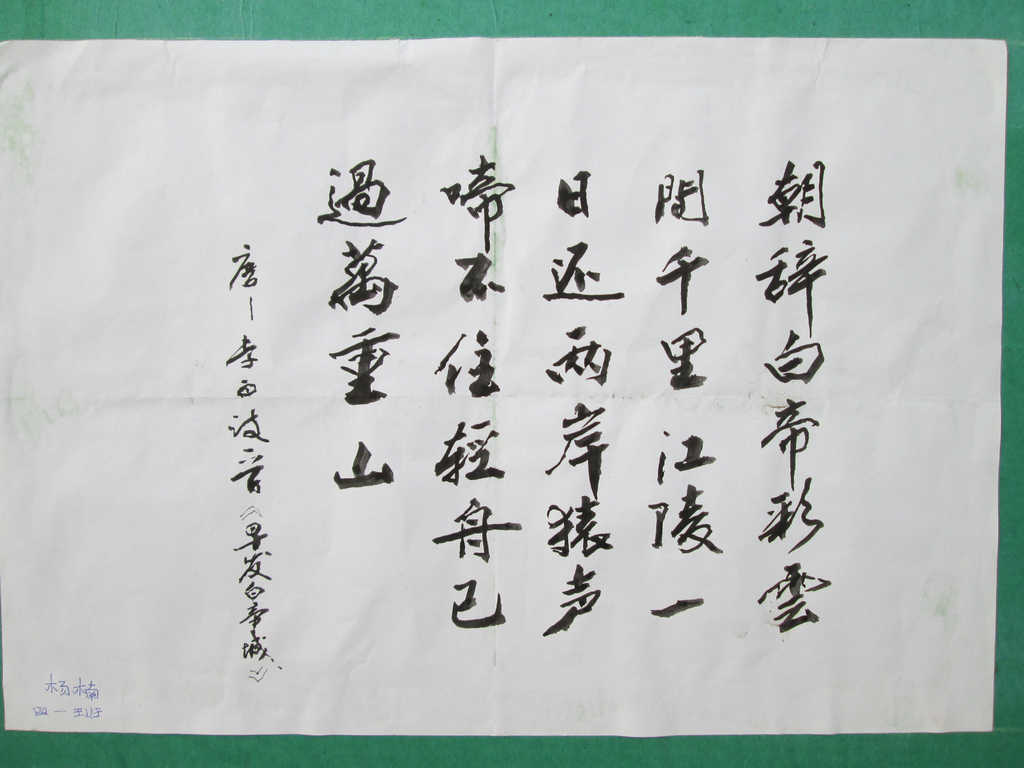 朝辞白帝彩雲
間千里江陵一
日还两岸猿声
啼不住輕舟已
過萬重山
唐 李白 《早发白帝城》
杨楠
四一班